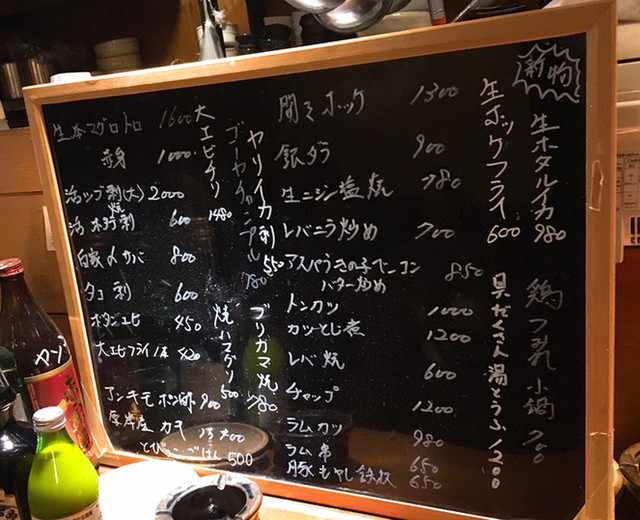 新物
生ホタルイカ 980
鶏つみれ小鍋 700
生ホッケフライ 600
具だくさん湯とうふ 1200
開きホッケ 1300
銀ダラ 900
生ニシン塩焼 780
レバニラ炒め 700
アスパラきの子ベーコン
バター炒め 850
トンカツ 1000
カツとじ煮 1200
レバ焼 600
チャップ 1200
ラムカツ 980
ラム串 650
豚もやし鉄板 650
ヤリイカ刺 550
ゴーヤチャンプル 780
大エビチリ 1480
ブリカマ焼 780
焼ハマグリ 500
生本マグロトロ 1600
赤身 1000
活ツブ刺(大) 2000
活ホタテ刺 焼 600
自家〆サバ 800
タコ刺 600
ボタンエビ 450
大エビフライ1本 420
アンキモポン酢 900
厚岸産カキ
とびっこごはん 500